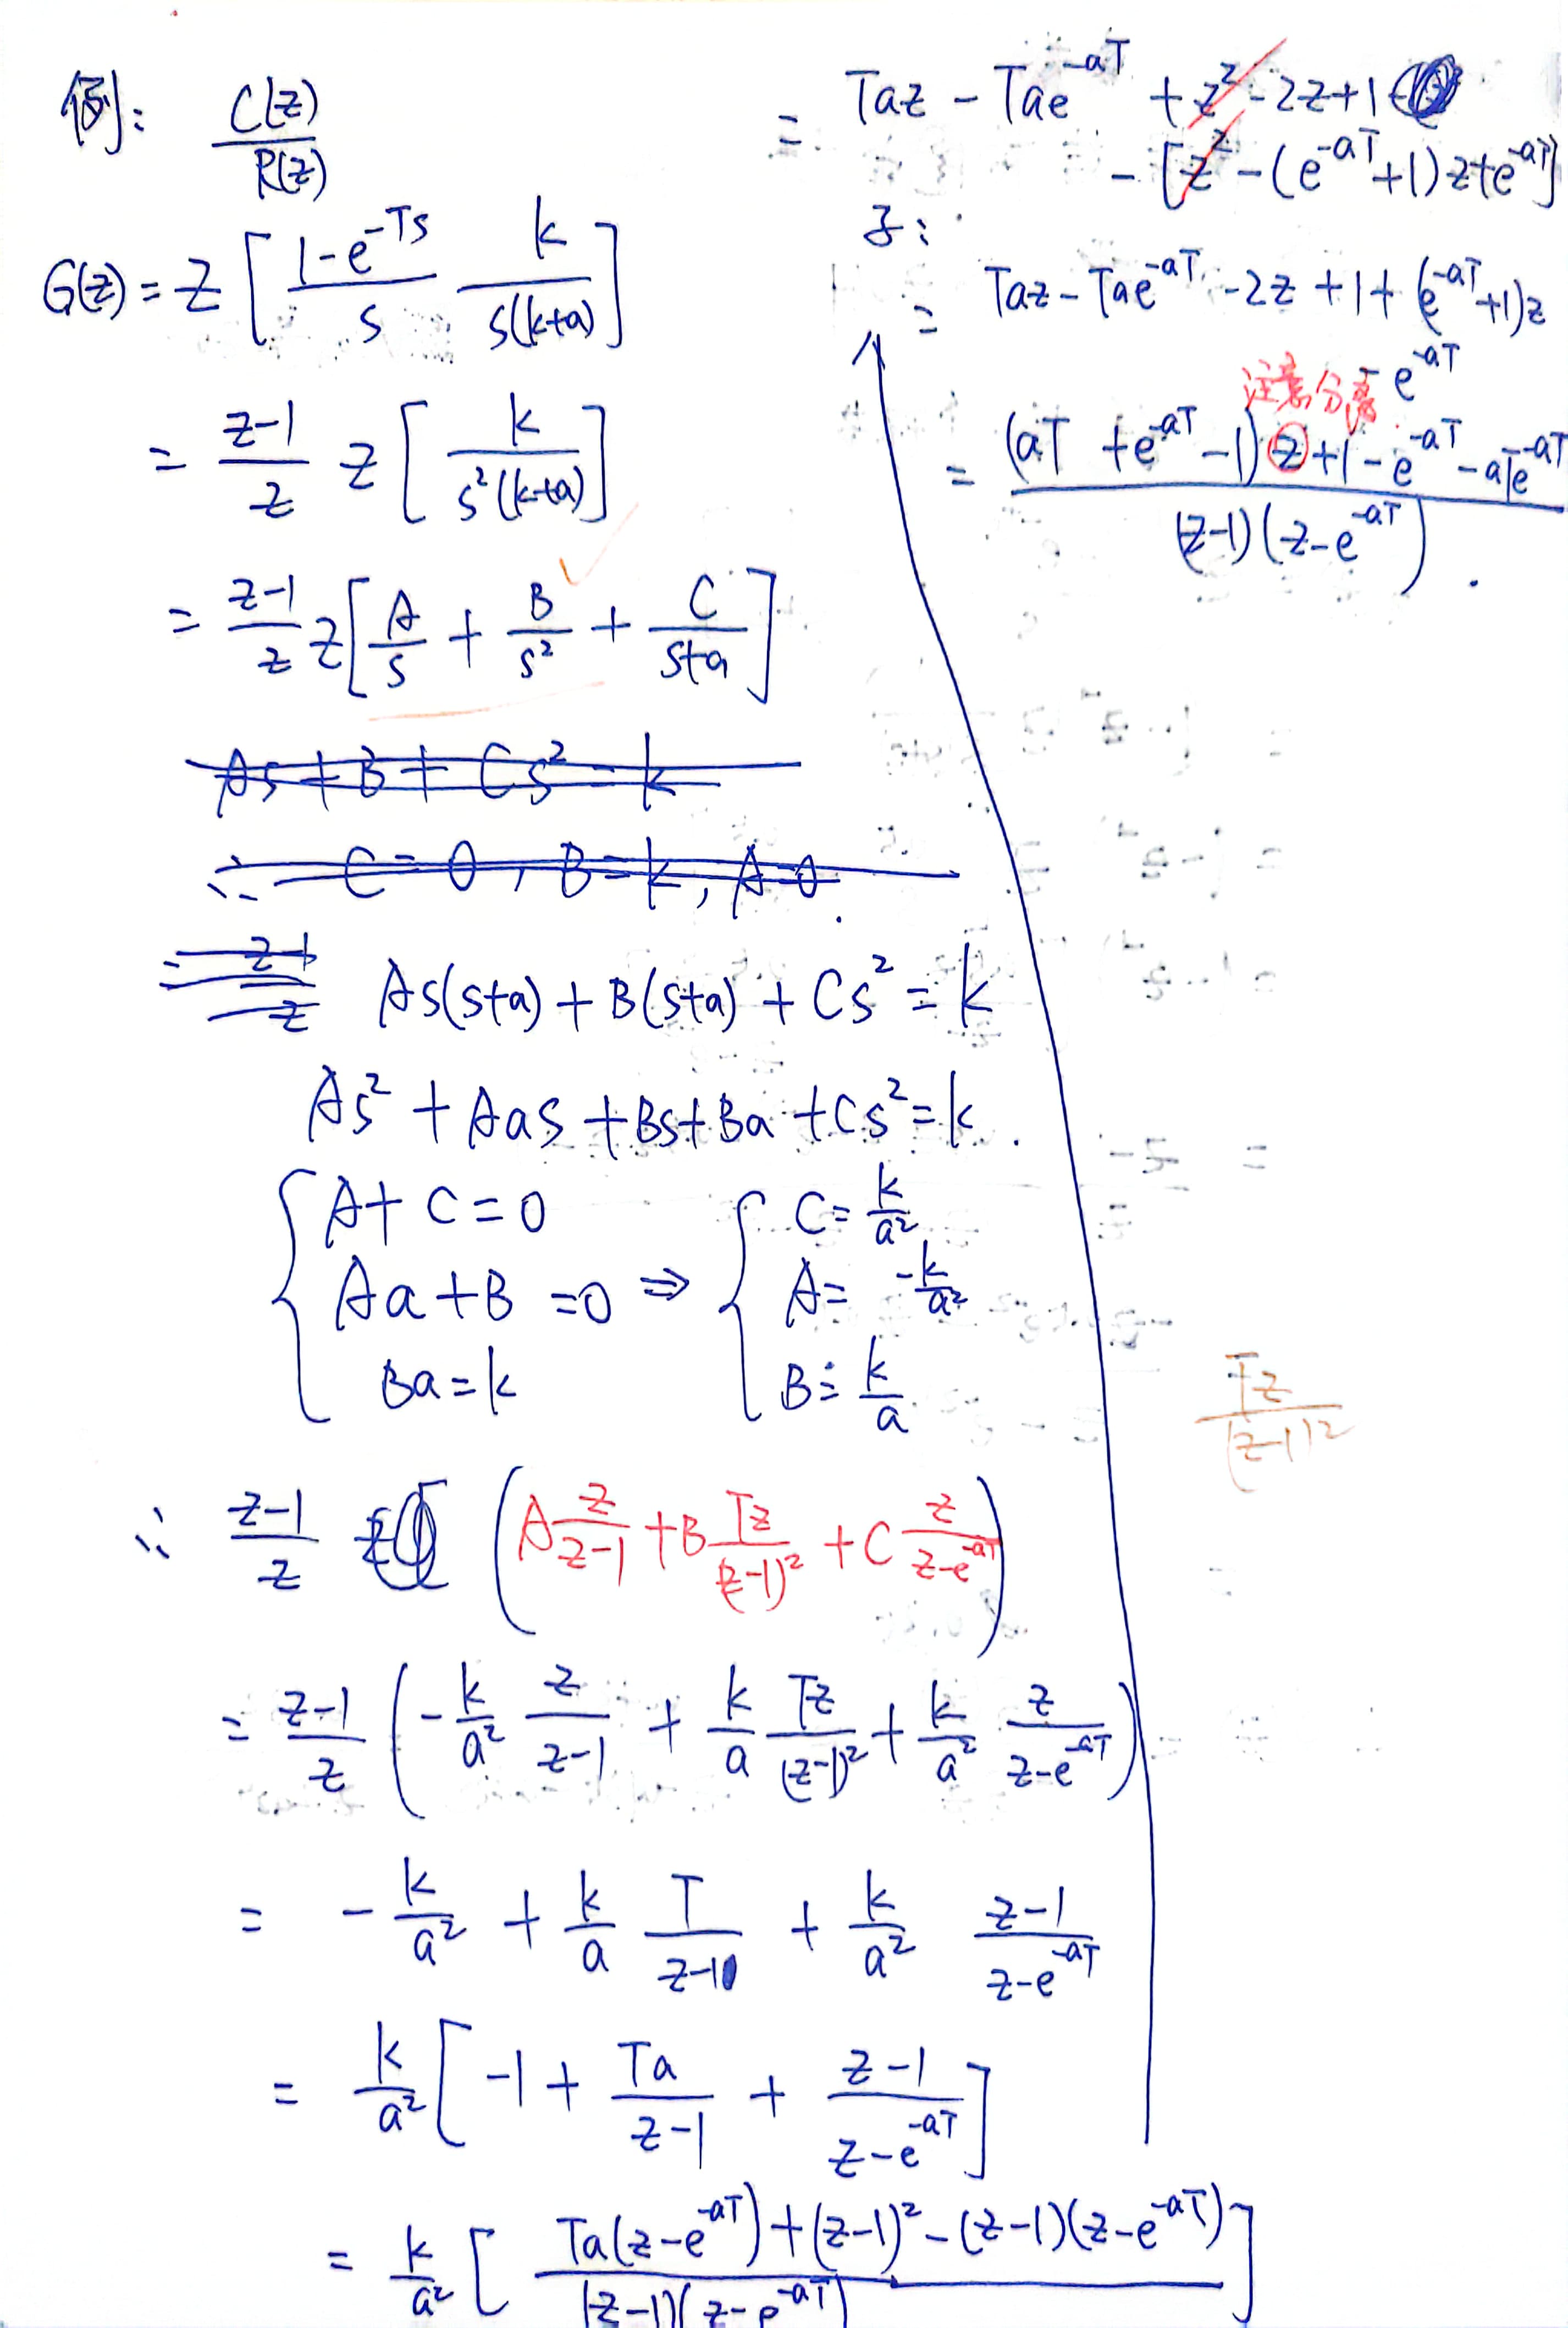 例: C(z)/R(z)
G(z) = Z [ (1-e^{-Ts})/s  k/(s(k+a)) ]
= (z-1)/z Z [ k/(s²(k+a)) ]
= (z-1)/z Z [ A/s + B/s² + C/(s+a) ]
As + B + Cs² = k
∴ C = 0, B = k, A=0.
= (z-1)/z
As(s+a) + B(s+a) + Cs² = k
As² + Aas + Bs + Ba + Cs² = k.
{ A + C = 0
Aa + B = 0
Ba = k
⇒ { C = k/a²
A = -k/a²
B = k/a
∴ (z-1)/z ( A z/(z-1) + B Tz/(z-1)² + C z/(z-e^{-aT}) )
= (z-1)/z ( -k/a² z/(z-1) + k/a Tz/(z-1)² + k/a² z/(z-e^{-aT}) )
= -k/a² + k/a T/(z-1) + k/a² (z-1)/(z-e^{-aT})
= k/a² [ -1 + Ta/(z-1) + (z-1)/(z-e^{-aT}) ]
= k/a² [ (Ta(z-e^{-aT}) + (z-1)² - (z-1)(z-e^{-aT})) / ((z-1)(z-e^{-aT})) ]
= Taz - Tae^{-aT} + z² - 2z + 1
- [z² - (e^{-aT}+1)z + e^{-aT}]
子:
= Taz - Tae^{-aT} - 2z + 1 + (e^{-aT}+1)z
- e^{-aT}
注意分离
= ((aT + e^{-aT} - 1)z + 1 - e^{-aT} - aTe^{-aT}) / ((z-1)(z-e^{-aT})).
Tz/(z-1)²